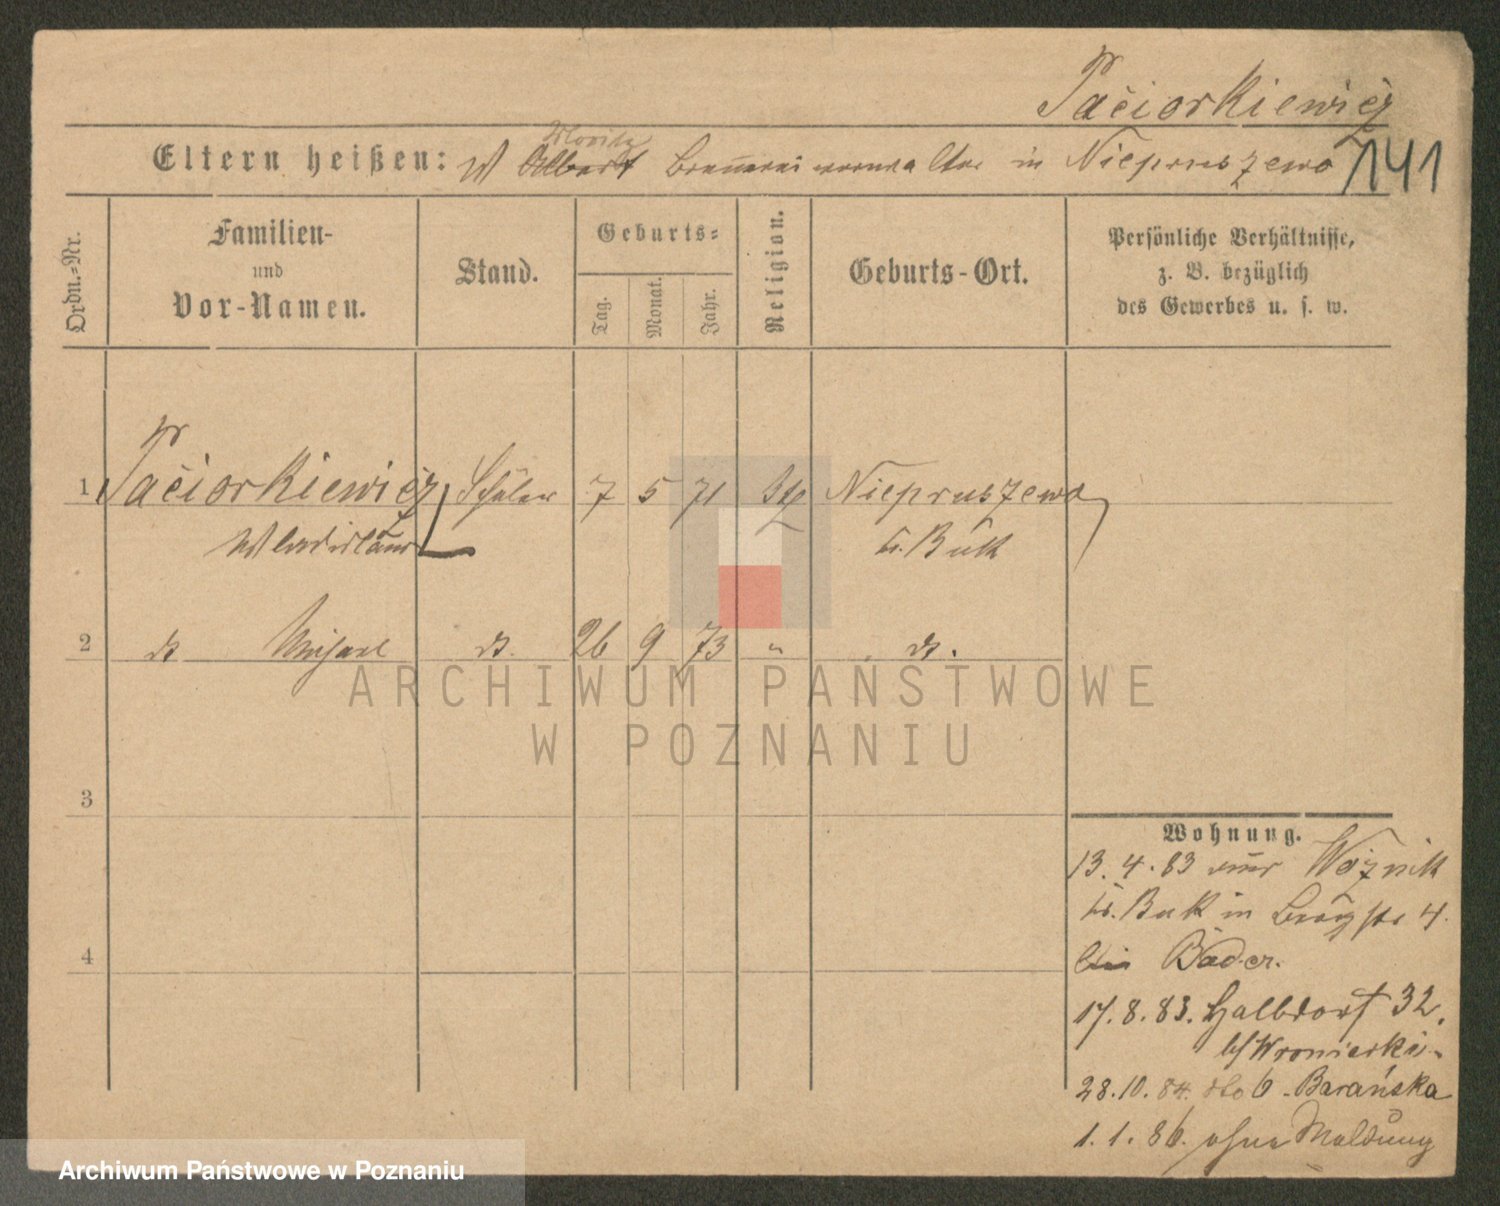 Paciorkiewicz
Eltern heißen: W Albert Brauereiverwalter in Niepruszewo 141
Moritz
Ordn.=Nr.
Familien-
und
Vor-Namen.
Stand.
Geburts=
Tag.
Monat.
Jahr.
Religion.
Geburts-Ort.
Persönliche Verhältnisse,
z. B. bezüglich
des Gewerbes u. s. w.
1 Paciorkiewicz Schüler 7 5 71 Niepruszewo
Wladislaus b. Buk
2 do Michael do. 26 9 73 " do.
3
4
Wohnung.
13.4.83 von Woznik
b. Buk in Bergstr 4.
bei Bader.
17.8.83. Halbdorf 32.
b/Wronierski.
28.10.84. dto 6. Barańska
1.1.86. ohne Meldung
ARCHIWUM PAŃSTWOWE
W POZNANIU
Archiwum Państwowe w Poznaniu